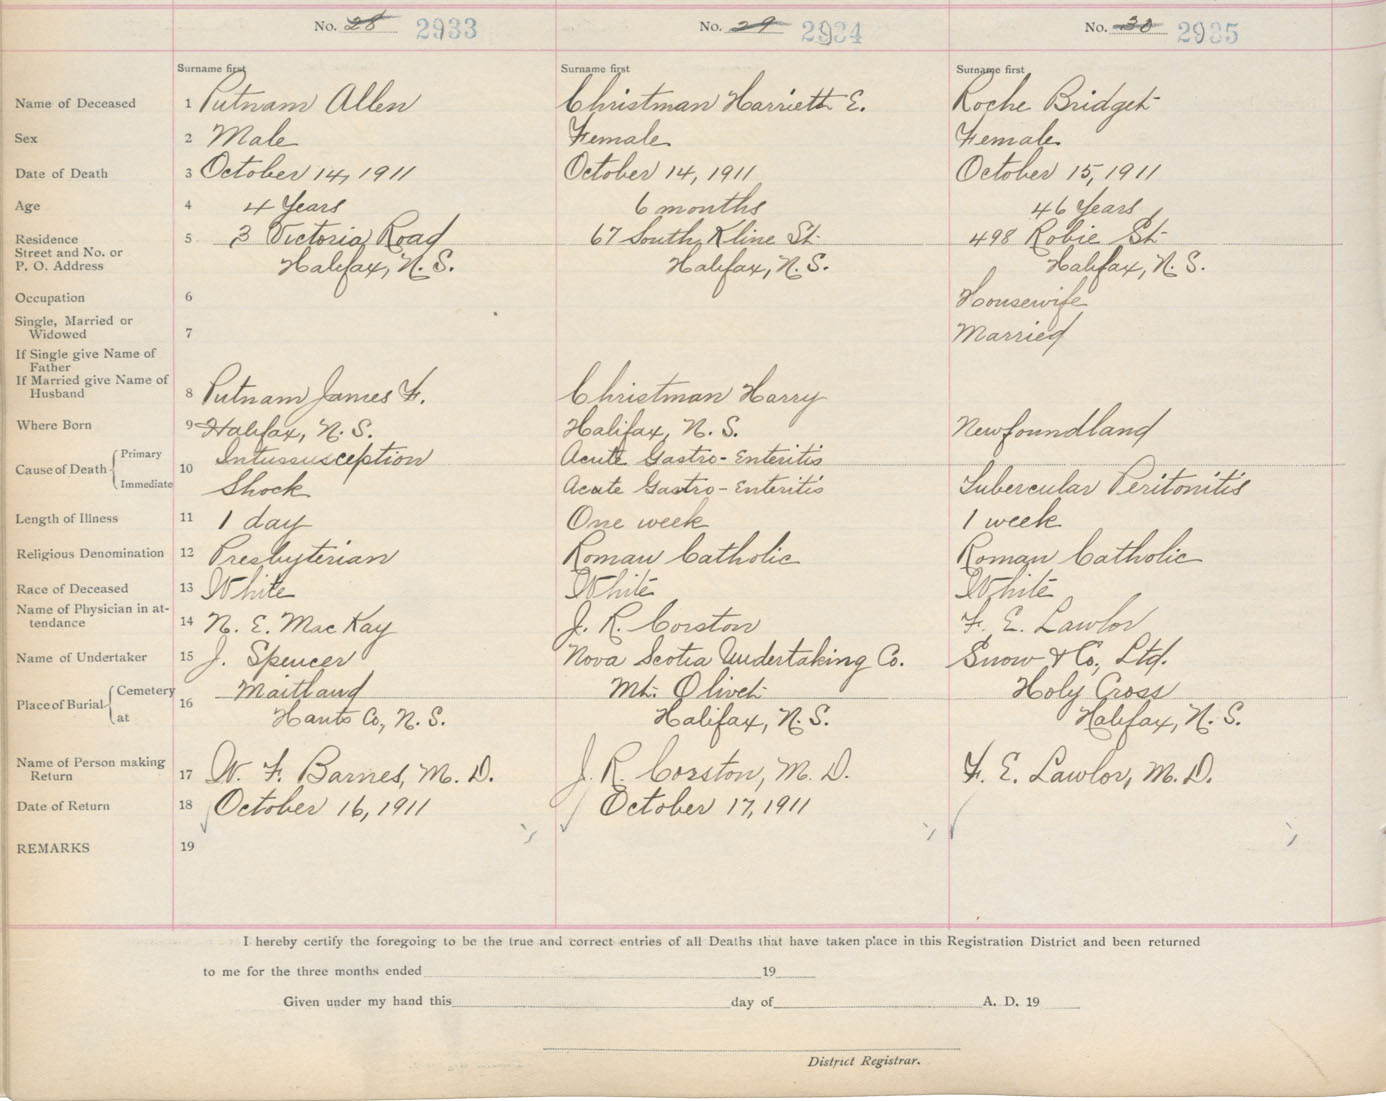 No. 28 2933 No. 29 2934 No. 30 2935
Surname first Surname first Surname first
Name of Deceased 1 Putnam Allen Christman Harriett E. Roche Bridget
Sex 2 Male Female Female
Date of Death 3 October 14, 1911 October 14, 1911 October 15, 1911
Age 4 4 Years 6 months 46 Years
Residence 5 3 Victoria Road 67 South Kline St. 498 Robie St.
Street and No. or
P. O. Address Halifax, N. S. Halifax, N. S. Halifax, N. S.
Occupation 6 Housewife
Single, Married or
Widowed 7 Married
If Single give Name of
Father
If Married give Name of
Husband 8 Putnam James F. Christman Harry
Where Born 9 Halifax, N. S. Halifax, N. S. Newfoundland
Cause of Death Primary Intussusception Acute Gastro-Enteritis
10
Immediate Shock Acute Gastro-Enteritis Tubercular Peritonitis
Length of Illness 11 1 day One week 1 week
Religious Denomination 12 Presbyterian Roman Catholic Roman Catholic
Race of Deceased 13 White White White
Name of Physician in at-
tendance 14 N. E. MacKay J. R. Corston F. E. Lawlor
Name of Undertaker 15 J. Spencer Nova Scotia Undertaking Co. Snow & Co., Ltd.
Place of Burial Cemetery Maitland Mt. Olivet Holy Cross
16
at Hants Co, N. S. Halifax, N. S. Halifax, N. S.
Name of Person making
Return 17 W. F. Barnes, M. D. J. R. Corston, M. D. F. E. Lawlor, M. D.
Date of Return 18 October 16, 1911 October 17, 1911
REMARKS 19
I hereby certify the foregoing to be the true and correct entries of all Deaths that have taken place in this Registration District and been returned
to me for the three months ended 19
Given under my hand this day of A. D. 19
District Registrar.